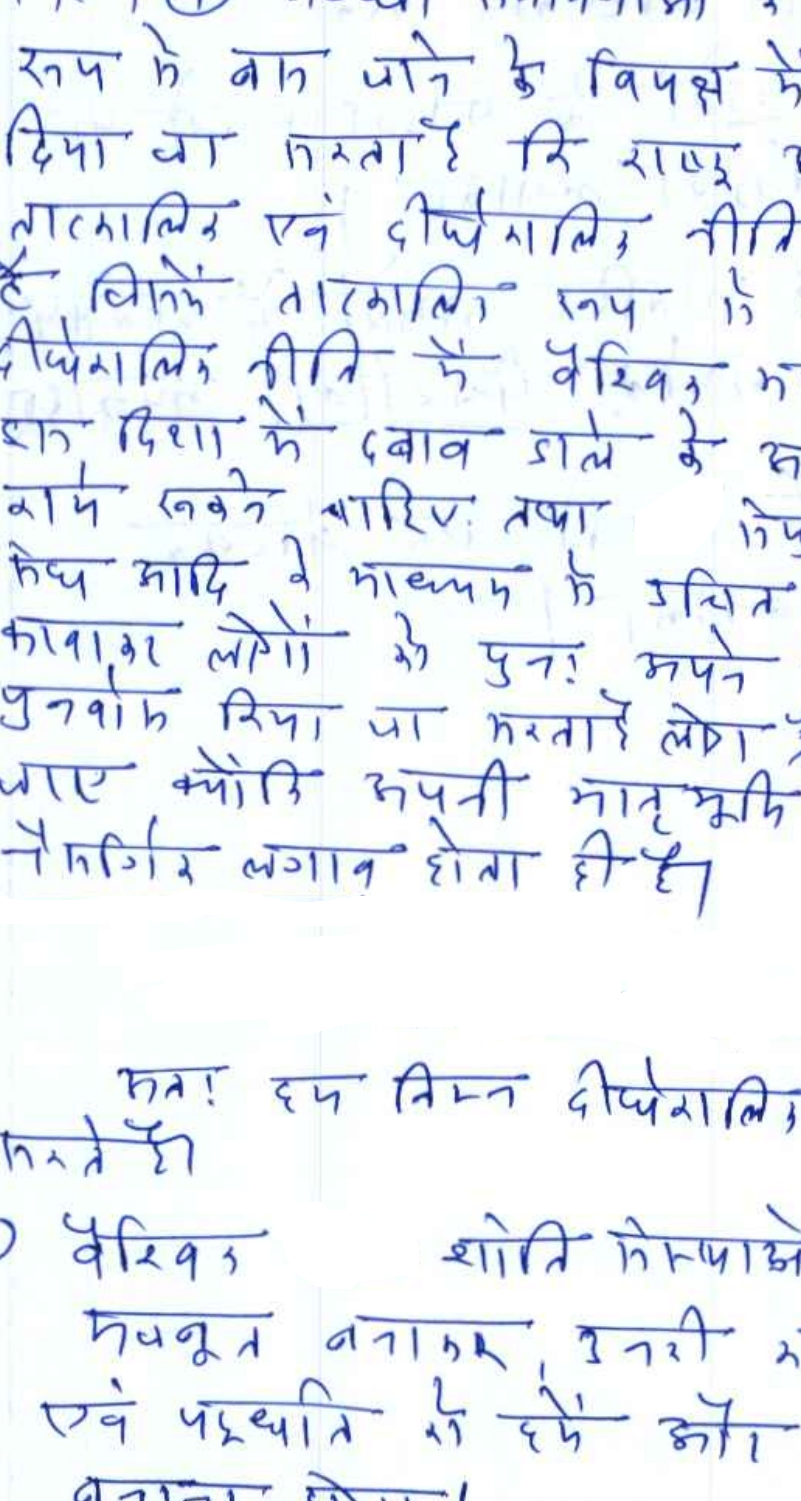 रूप से बस जाने के विपक्ष में
दिया जा सकता है कि राष्ट्र
तात्कालिक एवं दीर्घकालिक नीति
है जिसमें तात्कालिक रूप से
दीर्घकालिक नीति में वैश्विक
इस दिशा में दबाव डाले के
कार्य करने चाहिए तथा
संघ आदि के माध्यम से उचित
लोगों को पुनः अपने
पुनर्वास किया जा सकता है लोग
जाए क्योंकि अपनी मातृभूमि
नैसर्गिक लगाव होता ही है।
अतः हम निम्न दीर्घकालिक
सकते है।
वैश्विक शांति संस्थाओं
मजबूत बनाकर, उनकी
एवं पद्धति को हमें और
बनाना होगा।